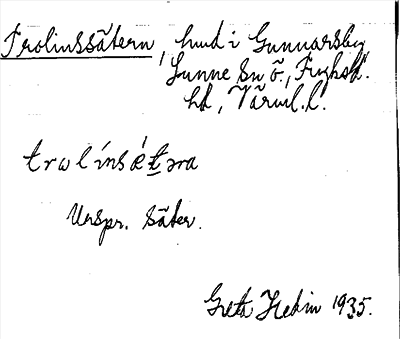 Trolinssätern, hmd i Gunnarsby,
Sunne sn ö., Fryksd.
hd, Värml. l.
trωlínsǽtəra
Urspr. säter.
Greta Hedin 1935.